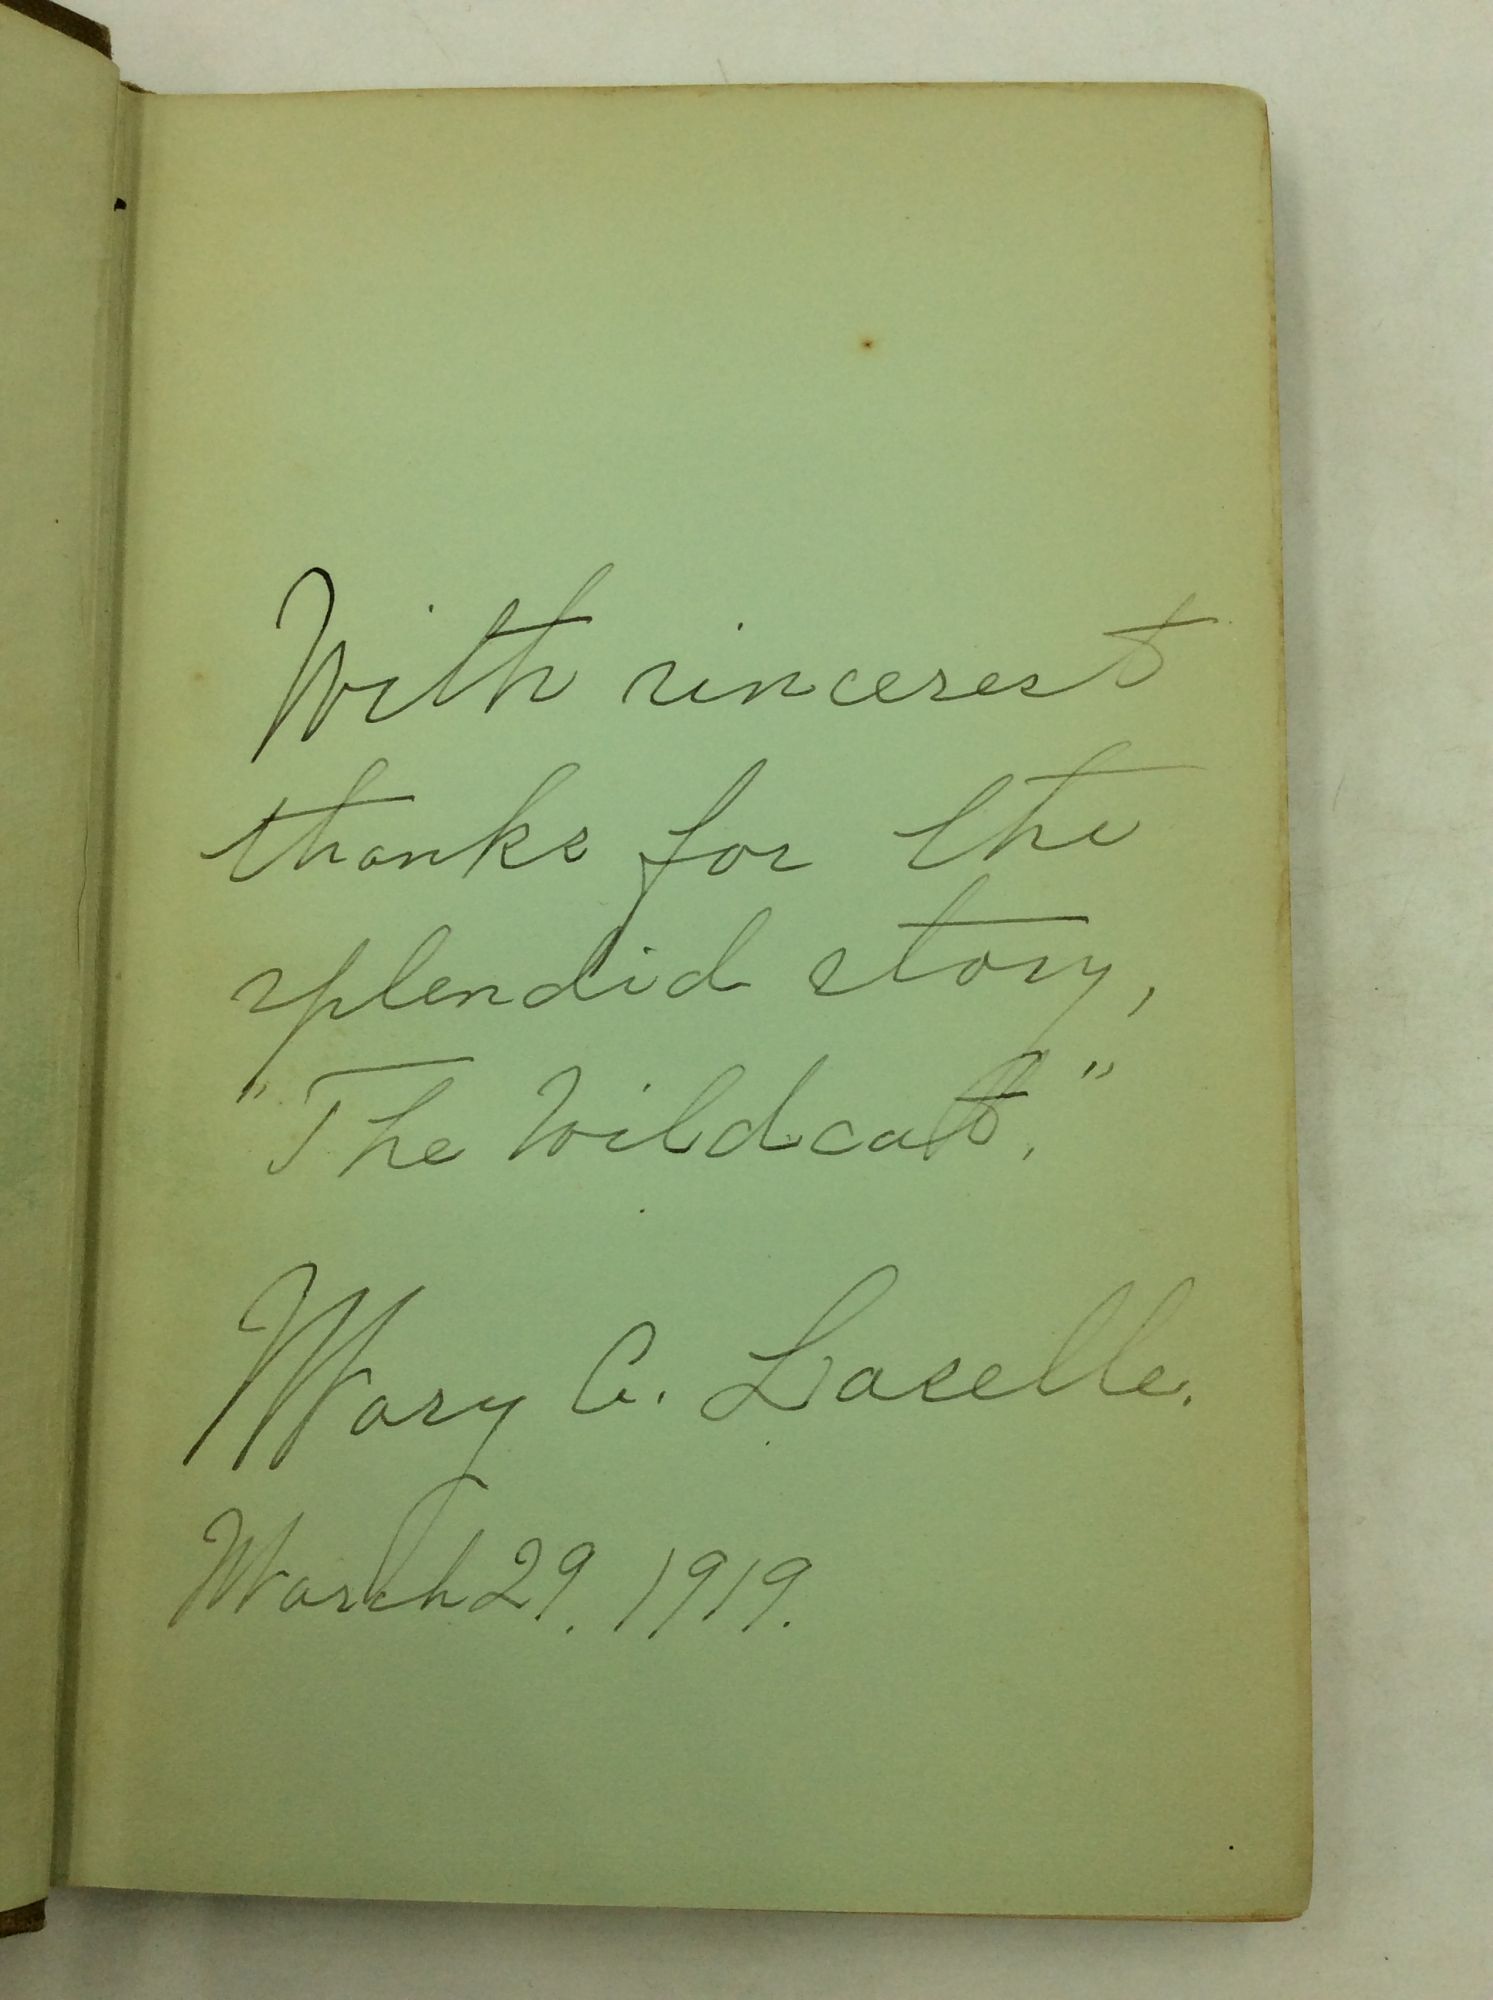 With sincerest
thanks for the
splendid story,
"The Wildcat."
Mary C. Laselle.
March 29. 1919.